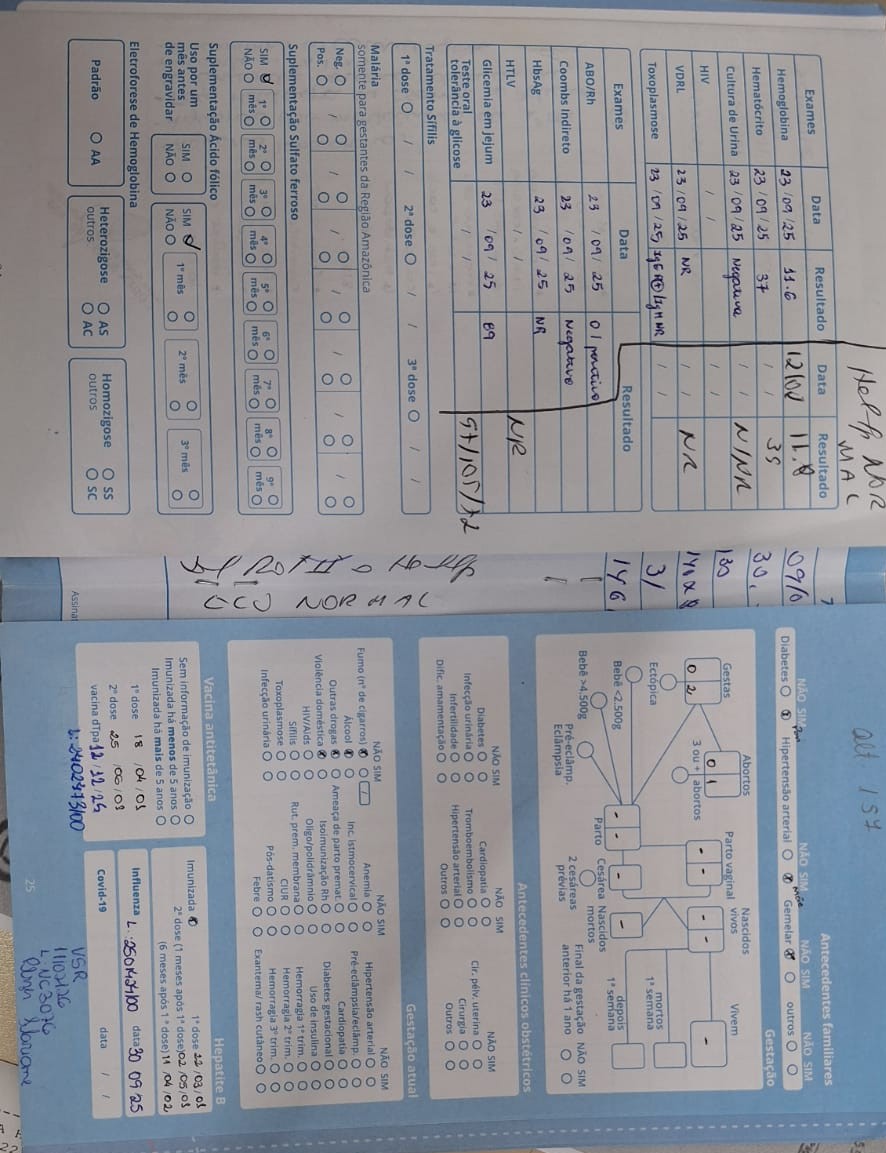 Help NDR
MAC
Exames Data Resultado Data Resultado
Hemoglobina 23/09/25 11.6 12/02 11.8
Hematócrito 23/09/25 37 / / 35
Cultura de Urina 23/09/25 Negativa / / N/NR
HIV / / / /
VDRL 23/09/25 NR / / NR
Toxoplasmose 23/09/25 IgG R⊕/IgM NR / /
Exames Data Resultado
ABO/Rh 23/09/25 O/positivo
Coombs Indireto 23/09/25 Negativo
HbsAg 23/09/25 NR
HTLV / / NR
Glicemia em jejum 23/09/25 89
Teste oral tolerância à glicose / /
Tratamento Sífilis
1ª dose / / 2ª dose / / 3ª dose / /
Malária
somente para gestantes da Região Amazônica
Neg. / / / / / /
Pos.
Suplementação Sulfato ferroso
SIM 1º mês 2º mês 3º mês 4º mês 5º mês 6º mês 7º mês 8º mês 9º mês
NÃO
Suplementação Ácido fólico
Uso por um mês antes de engravidar SIM NÃO SIM NÃO 1º mês 2º mês 3º mês
Eletroforese de Hemoglobina
Padrão AA Heterozigose AS Homozigose SS
outros AC outros SC
30
3/
146
NORMAL
Assina
alt 157
Antecedentes familiares
NÃO SIM NÃO SIM NÃO SIM NÃO SIM
Diabetes Hipertensão arterial mãe Gemelar outros
Gestação
Gestas 02 Abortos 01 Parto vaginal - - Nascidos vivos - - Vivem -
3 ou + abortos
Ectópica
mortos 1ª semana
Bebê <2.500g Parto - - Cesárea - Nascidos mortos - depois 1ª semana
Bebê >4.500g Pré-eclâmp. Eclâmpsia 2 cesáreas prévias Final da gestação anterior há 1 ano NÃO SIM
Antecedentes clínicos obstétricos
NÃO SIM NÃO SIM NÃO SIM
Diabetes Cardiopatia Cir. pélv. uterina
Infecção urinária Tromboembolismo Cirurgia
Infertilidade Hipertensão arterial Outros
Dific. amamentação Outros
Gestação atual
NÃO SIM NÃO SIM NÃO SIM
Fumo (nº de cigarros) Anemia Hipertensão arterial
Álcool Inc. istmocervical Pré-eclâmpsia/eclâmp.
Outras drogas Ameaça de parto premat. Cardiopatia
Violência doméstica Isoimunização Rh Diabetes gestacional
HIV/Aids Oligo/polidrâmnio Uso de insulina
Sífilis Rut. prem. membrana Hemorragia 1º trim.
Toxoplasmose CIUR Hemorragia 2º trim.
Infecção urinária Pós-datismo Hemorragia 3º trim.
Febre Exantema/rash cutâneo
Vacina antitetânica
Sem informação de imunização
Imunizada há menos de 5 anos
Imunizada há mais de 5 anos
1ª dose 18/04/01
2ª dose 25/06/03
vacina dTpa 12/12/25
L: 2402473100
Hepatite B
Imunizada 1ª dose 22/03/01
2ª dose (1 meses após 1ª dose) 02/05/01
(6 meses após 1ª dose) 11/04/02
Influenza L. 250142400 data 30 09 25
Covid-19 data / /
25
VSR
L: NC3076